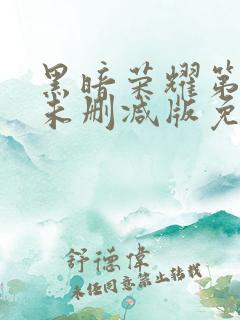 黑暗荣耀第
未删减版免
舒德伟
未经同意禁止转载